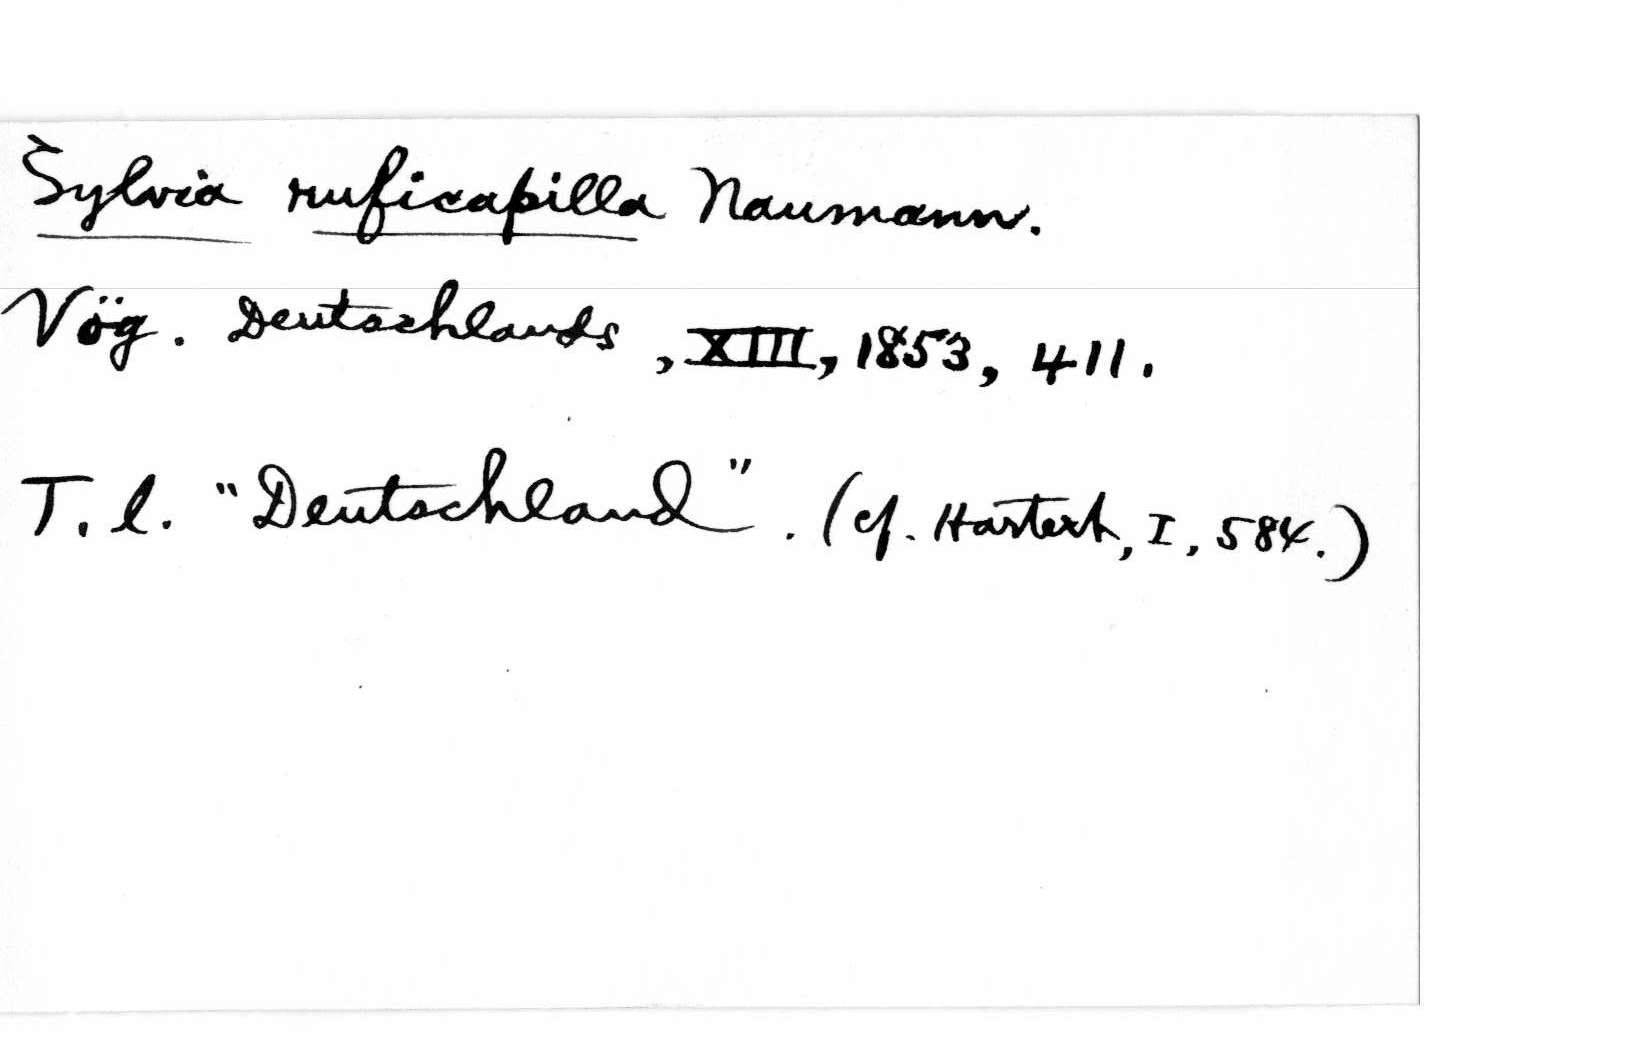 Sylvia ruficapilla Naumann.
Vög. Deutschlands, XIII, 1853, 411.
T. l. "Deutschland". (cf. Hartert, I, 584.)